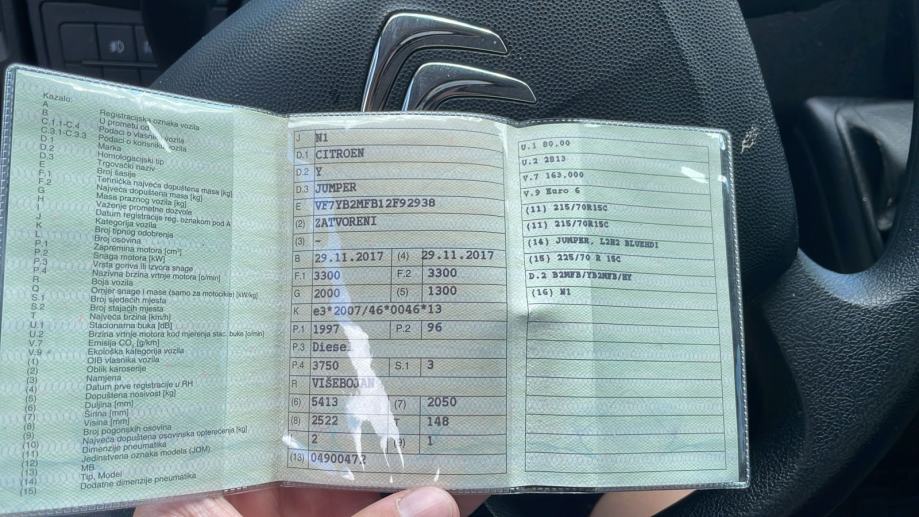 Kazalo:
A Registracijska oznaka vozila
B U prometu od
C.1.1-C.4 Podaci o vlasniku vozila
C.3.1-C.3.3 Podaci o korisniku vozila
D.1 Marka
D.2 Homologacijski tip
D.3 Trgovački naziv
E Broj šasije
F.1 Tehnička najveća dopuštena masa [kg]
F.2 Najveća dopuštena masa [kg]
G Masa praznog vozila [kg]
H Važenje prometne dozvole
I Datum registracije reg. oznakom pod A
J Kategorija vozila
K Broj tipnog odobrenja
L Broj osovina
P.1 Zapremina motora [cm³]
P.2 Snaga motora [kW]
P.3 Vrsta goriva ili izvora snage
P.4 Nazivna brzina vrtnje motora [o/min]
R Boja vozila
Q Omjer snage i mase (samo za motocikle) [kW/kg]
S.1 Broj sjedećih mjesta
S.2 Broj stajaćih mjesta
T Najveća brzina [km/h]
U.1 Stacionarna buka [dB]
U.2 Brzina vrtnje motora kod mjerenja stac. buke [o/min]
V.7 Emisija CO₂ [g/km]
V.9 Ekološka kategorija vozila
(1) OIB vlasnika vozila
(2) Oblik karoserije
(3) Namjena
(4) Datum prve registracije u RH
(5) Dopuštena nosivost [kg]
(6) Duljina [mm]
(7) Širina [mm]
(8) Visina [mm]
(9) Broj pogonskih osovina
(10) Najveća dopuštena osovinska opterećenja [kg]
(11) Dimenzije pneumatika
(12) Jedinstvena oznaka modela (JOM)
(13) MB
(14) Tip, Model
(15) Dodatne dimenzije pneumatika
J N1
D.1 CITROEN
D.2 Y
D.3 JUMPER
E VF7YB2MFB12F92938
(2) ZATVORENI
(3) -
B 29.11.2017 (4) 29.11.2017
F.1 3300 F.2 3300
G 2000 (5) 1300
K e3*2007/46*0046*13
P.1 1997 P.2 96
P.3 Diesel
P.4 3750 S.1 3
R VIŠEBOJAN
(6) 5413 (7) 2050
(8) 2522 T 148
2 (9) 1
(13) 0490047?
U.1 80,00
U.2 2813
V.7 163,000
V.9 Euro 6
(11) 215/70R15C
(11) 215/70R15C
(14) JUMPER, L2H2 BLUEHDI
(15) 225/70 R 15C
D.2 B2MFB/YB2MFB/HY
(16) N1